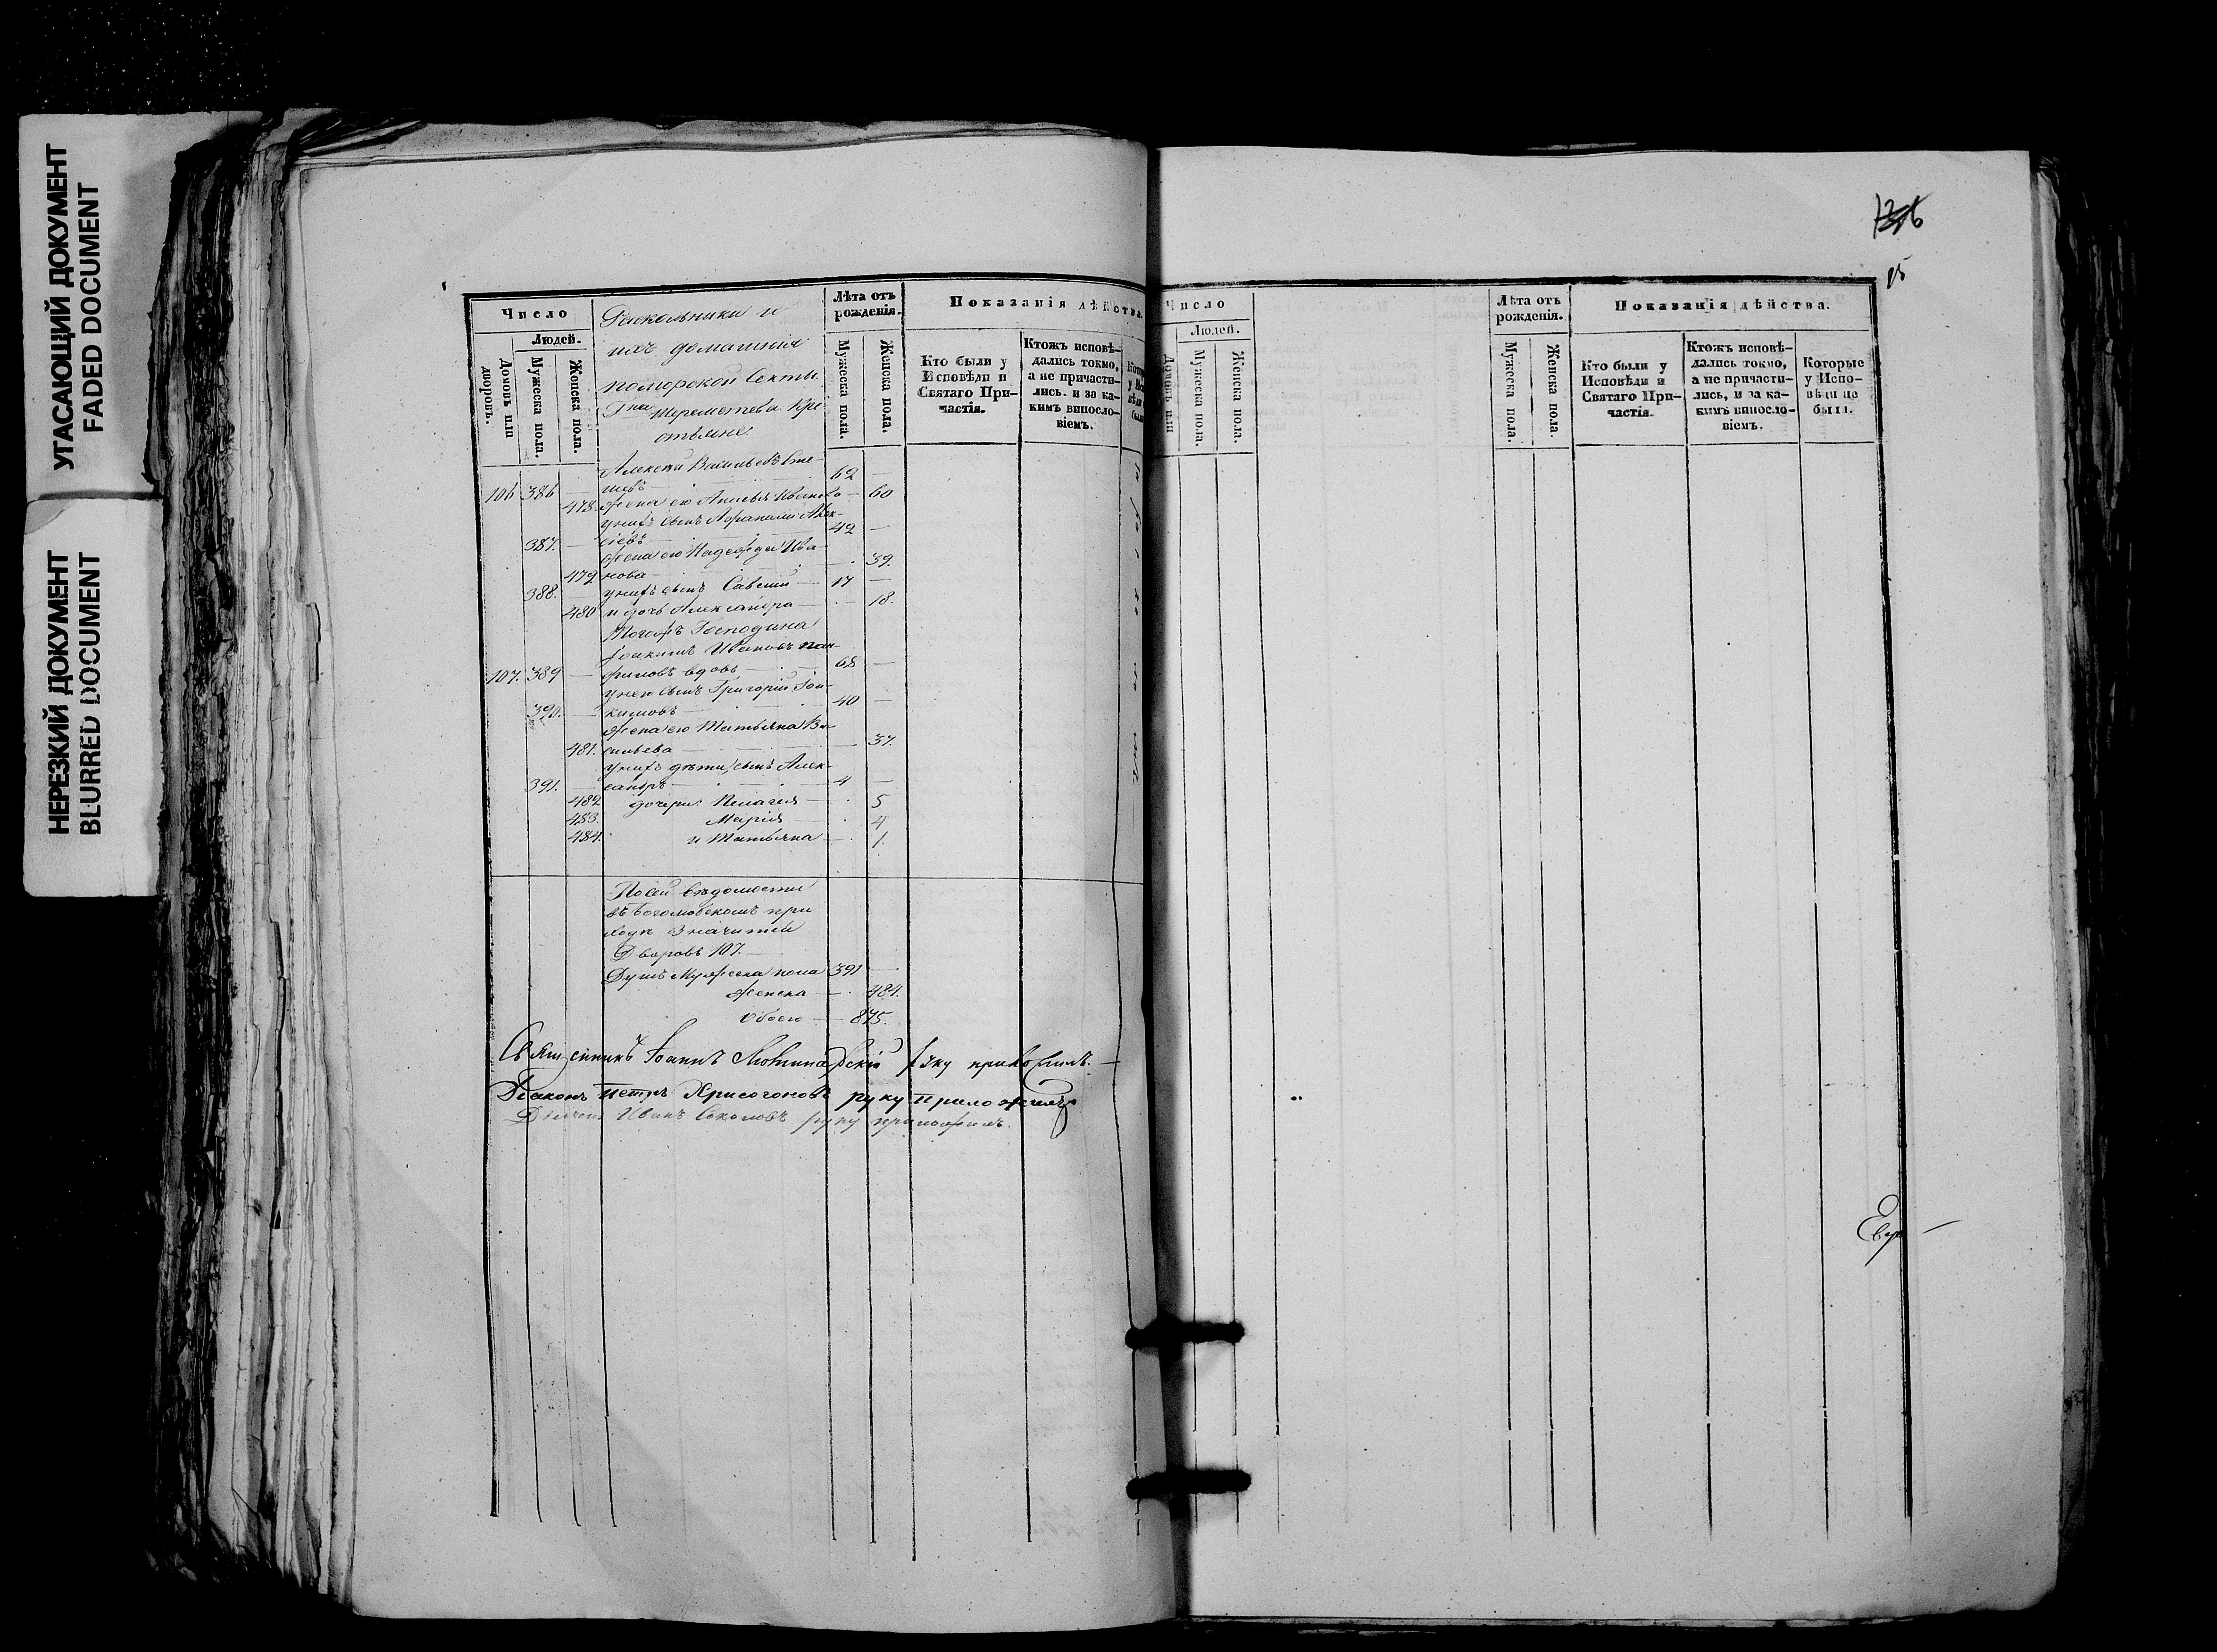 УГАСАЮЩИЙ ДОКУМЕНТ
FADED DOCUMENT
НЕРЕЗКИЙ ДОКУМЕНТ
BLURRED DOCUMENT
Число
Людей.
Домовъ или дворовъ.
Мужеска пола.
Женска пола.
Раскольники и
ихъ домашнiя
поморской секты.
Гна Шереметева Кре
стьяне:
Лѣта отъ
рожденія.
Мужеска пола.
Женска пола.
Показанія дѣйства.
Кто были у
Исповѣди и
Святаго При-
частія.
Ктожъ исповѣ-
дались токмо,
а не причасти-
лись. и за ка-
кимъ винosло-
віемъ.
Алексѣй Васильевъ
106 386 62 —
478. жена его Иванова — 60
у нихъ сынъ Афанасій Алек-
387. — сѣевъ 42 —
жена его Надежда Ива-
479 нова — 39.
388. — у нихъ сынъ Савелій — 17 —
480 и дочь Александра — 18.
Тогожъ Господина
Іоакимъ Ивановъ
107. 389 — вдовъ 68 —
у него сынъ Григорій Іоа-
390. — кимовъ 40 —
жена его Татьяна Ва-
481. сильева — 37.
у нихъ дѣти, сынъ Алек-
391. — сандръ 4 —
482 дочери: Пелагея — 5
483. Марія — 4
484. и Татьяна — 1.
По сей вѣдомости
въ Богословскомъ при
ходѣ значится
Дворовъ 107.
Душъ Мужеска пола 391 —
Женска — 484.
Обоего — 875.
Священникъ Іоаннъ руку приложилъ. —
Діаконъ Петръ Хрисогоновъ руку приложилъ
Дьячекъ Иванъ Соколовъ руку приложилъ.
95
Число
Людей.
Мужеска пола.
Женска пола.
Лѣта отъ
рожденія.
Мужеска пола.
Женска пола.
Показанія дѣйства.
Кто были у
Исповѣди и
Святаго При-
частія.
Ктожъ исповѣ-
дались токмо,
а не причасти-
лись, и за ка-
кимъ винosло-
віемъ.
Которые
у Испо-
вѣди не
были.